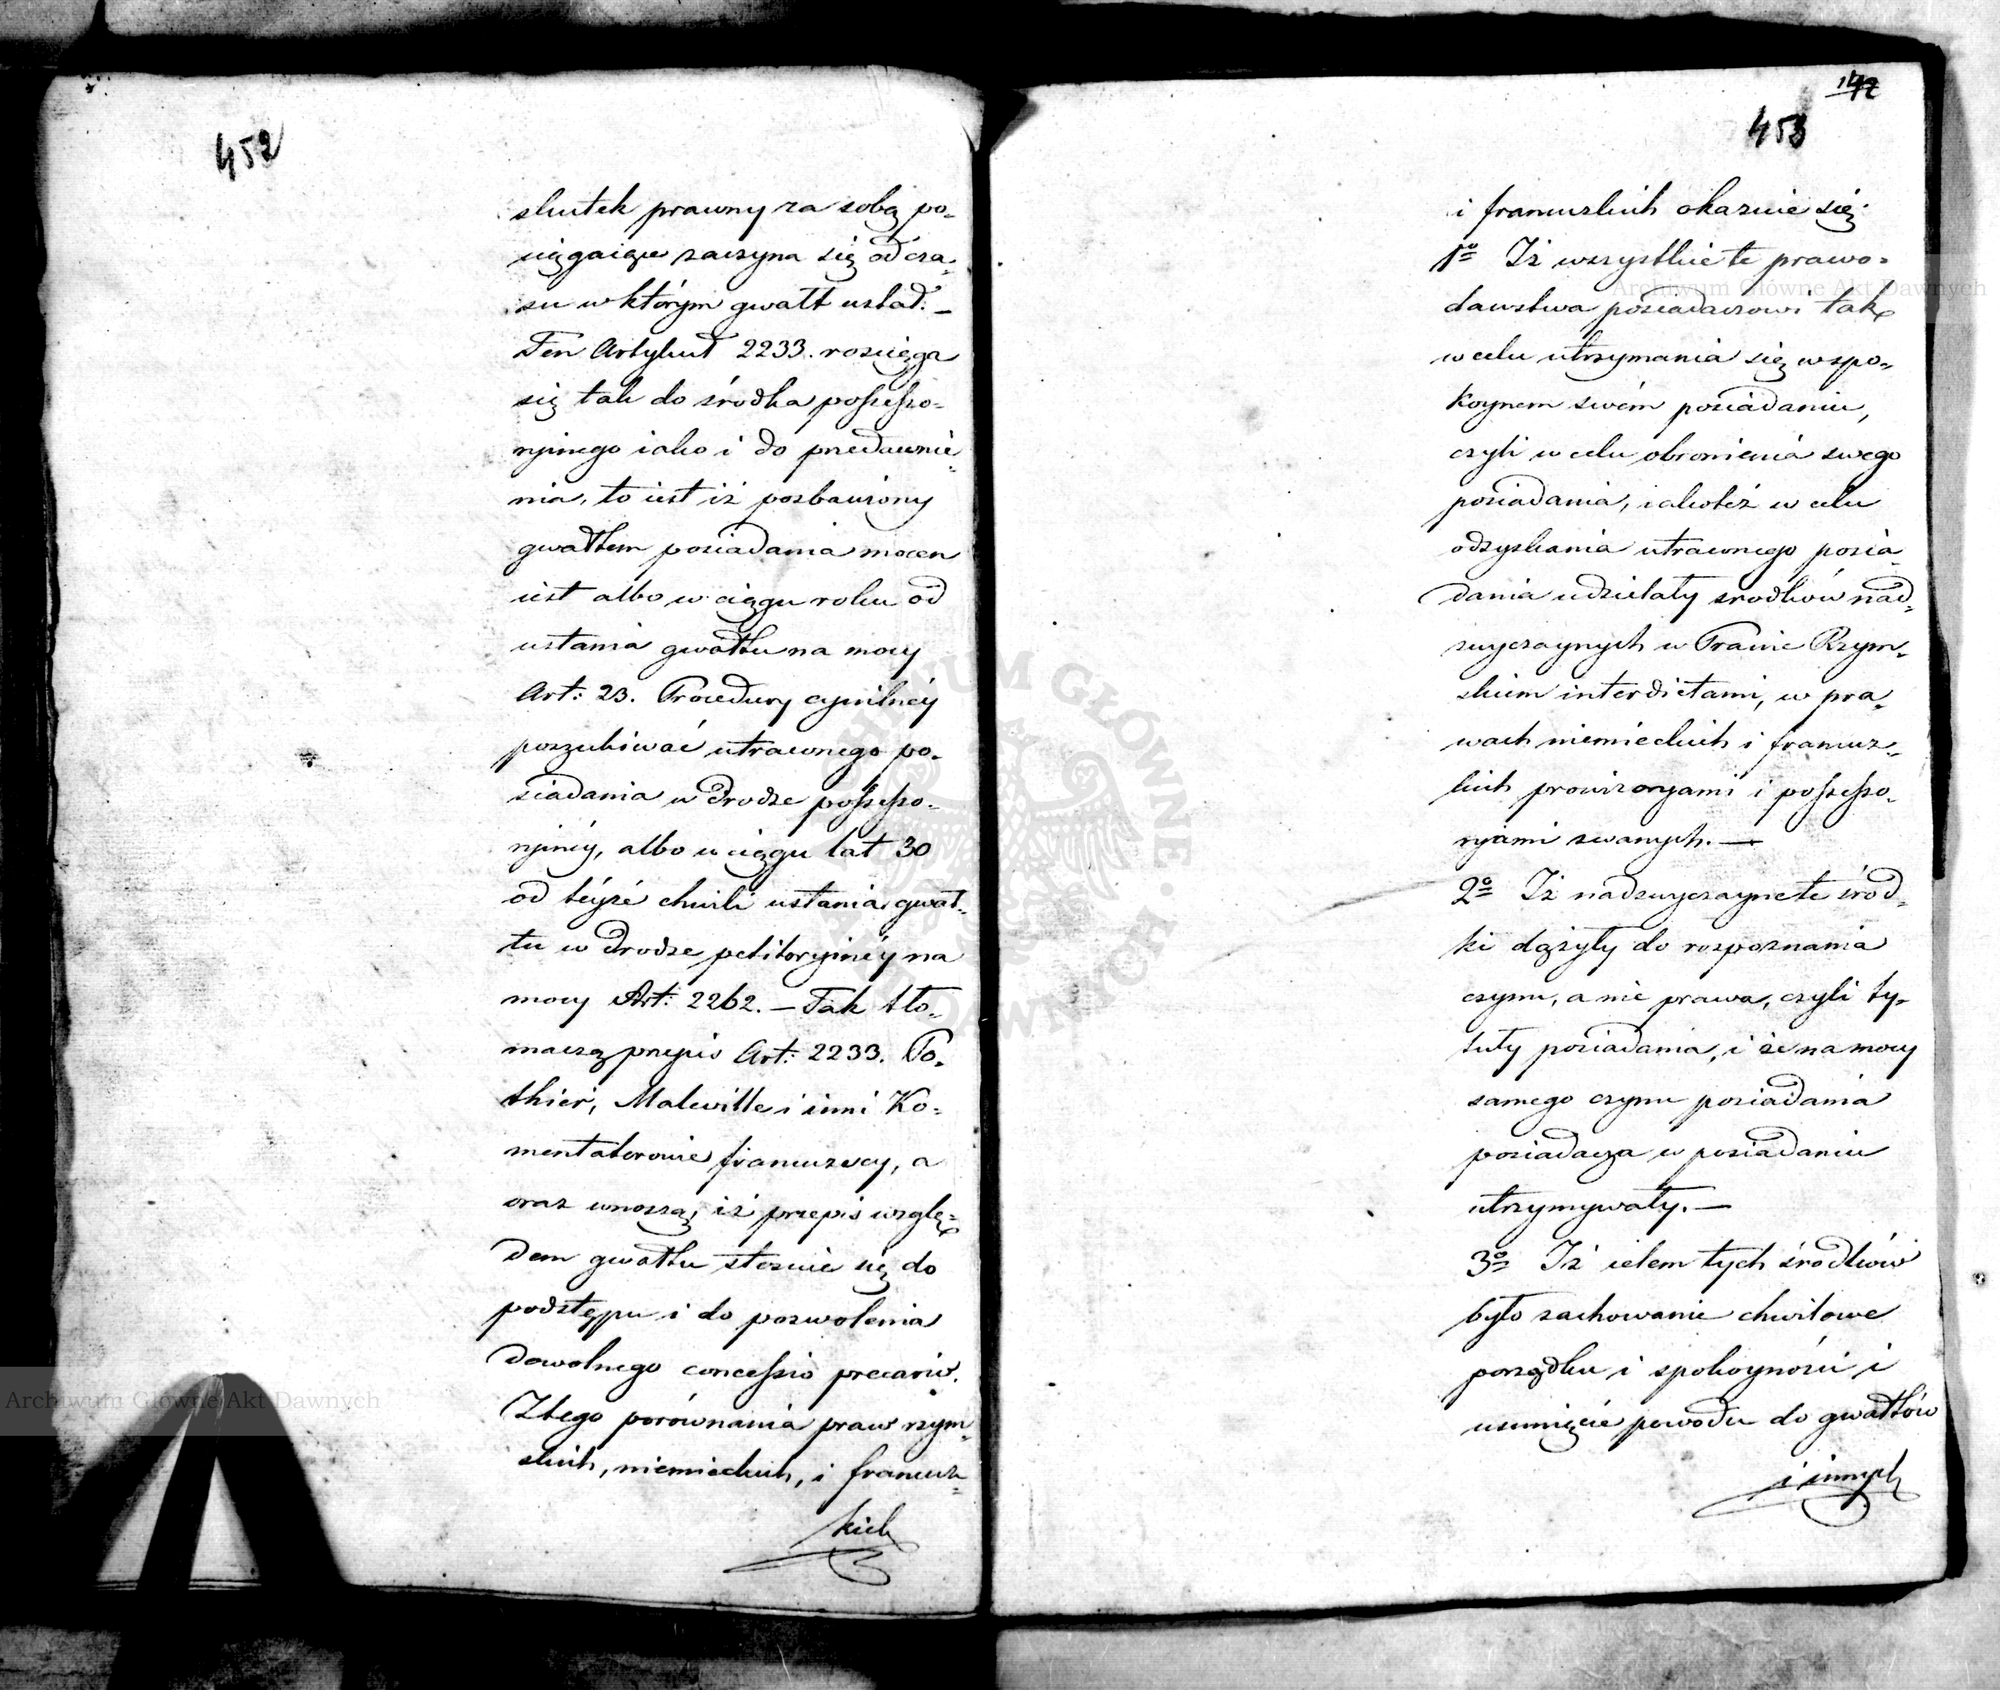 452
skutek prawny za sobą po-
ciągaiące zaczyna się od cza-
su w którym gwałt ustał. –
Ten Artykuł 2233. rosciąga
się tak do środka possesso-
ryinego iako i do przedawnie-
nia, to iest iż pozbawiony
gwałtem posiadania mocen
iest albo w ciągu roku od
ustania gwałtu na mocy
Art: 23. Procedury cywilnéy
poszukiwać utraconego po-
siadania w drodze possesso-
ryinéy, albo w ciągu lat 30
od téyże chwili ustania gwał-
tu w drodze petitoryinéy na
mocy Art: 2262. – Tak tło-
maczą przepis Art: 2233. Po-
thier, Maleville i inni Ko-
mentatorowie francuzcy, a
oraz wnoszą, iż przepis wzglę-
dem gwałtu stosuie się do
podstępu i do pozwolenia
dowolnego concessio precario.
Z tego porównania praw rzym-
skich, niemieckich, i francuz-
kich
142
453
i francuzkich okazuie się:
1º Iż wszystkie te prawo-
dawstwa posiadaczowi tak
w celu utrzymania się w spo-
koynem swém posiadaniu,
czyli w celu obronienia swego
posiadania, iakoteż w celu
odzyskania utraconego posia-
dania udzielały srodków nad-
zwyczaynych w Prawie Rzym-
skiem interdictami, w pra-
wach niemieckich i francuz-
kich prowizoryami i possesso-
ryami zwanych. –
2º Iż nadzwyczayne te środ-
ki dążyły do rozpoznania
czynu, a nie prawa, czyli ty-
tuły posiadania, i że na mocy
samego czynu posiadania
posiadacza w posiadaniu
utrzymywały. –
3º Iż celem tych środków
było zachowanie chwilowe
porządku i spokoyności i
usunięcie powodu do gwałtów
i innych
Archiwum Główne Akt Dawnych
Archiwum Główne Akt Dawnych
ARCHIWUM GŁÓWNE AKT DAWNYCH